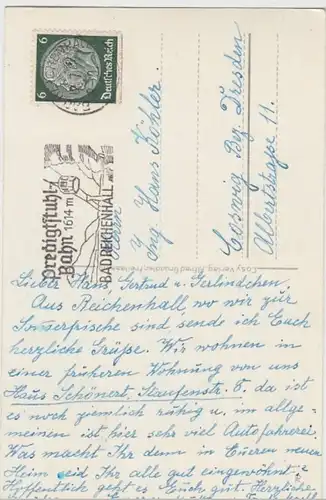 6 6
Deutsches Reich
Predigtstuhl-
Bahn 1614 m
BAD REICHENHALL
Herrn
Ing Hans Köhler.
Coswig Bz. Dresden
Albertstraße 11.
Lieber Hans Gertrud u. Gerlindchen,
Aus Reichenhall wo wir zur
Sommerfrische sind, sende ich Euch
herzliche Grüße. Wir wohnen in
einer früheren Wohnung von uns
Haus Schönert, Staufenstr. 5. da ist
es noch ziemlich ruhig u. im allge-
meinen ist hier sehr viel Autofahrerei.
Was macht Ihr denn in Eueren neuen
Heim seid Ihr alle gut eingewöhnt?
Hoffentlich geht es Euch gut. Herzliche